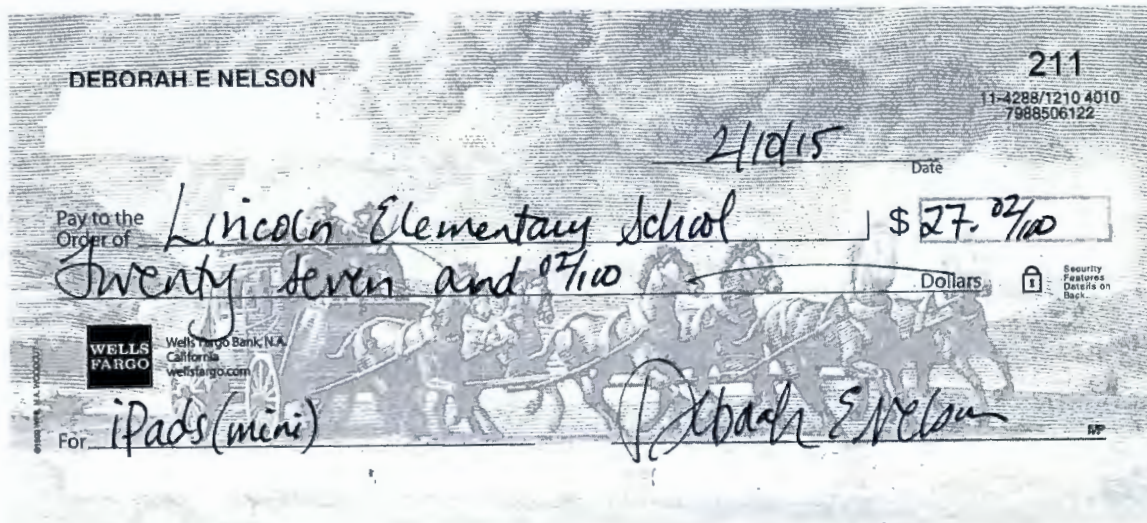 DEBORAH E NELSON
211
11-4288/1210 4010
7988506122
2/10/15
Date
Pay to the
Order of Lincoln Elementary School $ 27. 02/100
Twenty seven and 02/100 Dollars
Security
Features
Details on
Back.
WELLS
FARGO
Wells Fargo Bank, N.A.
California
wellsfargo.com
For iPads (mini) Deborah E Nelson
MP